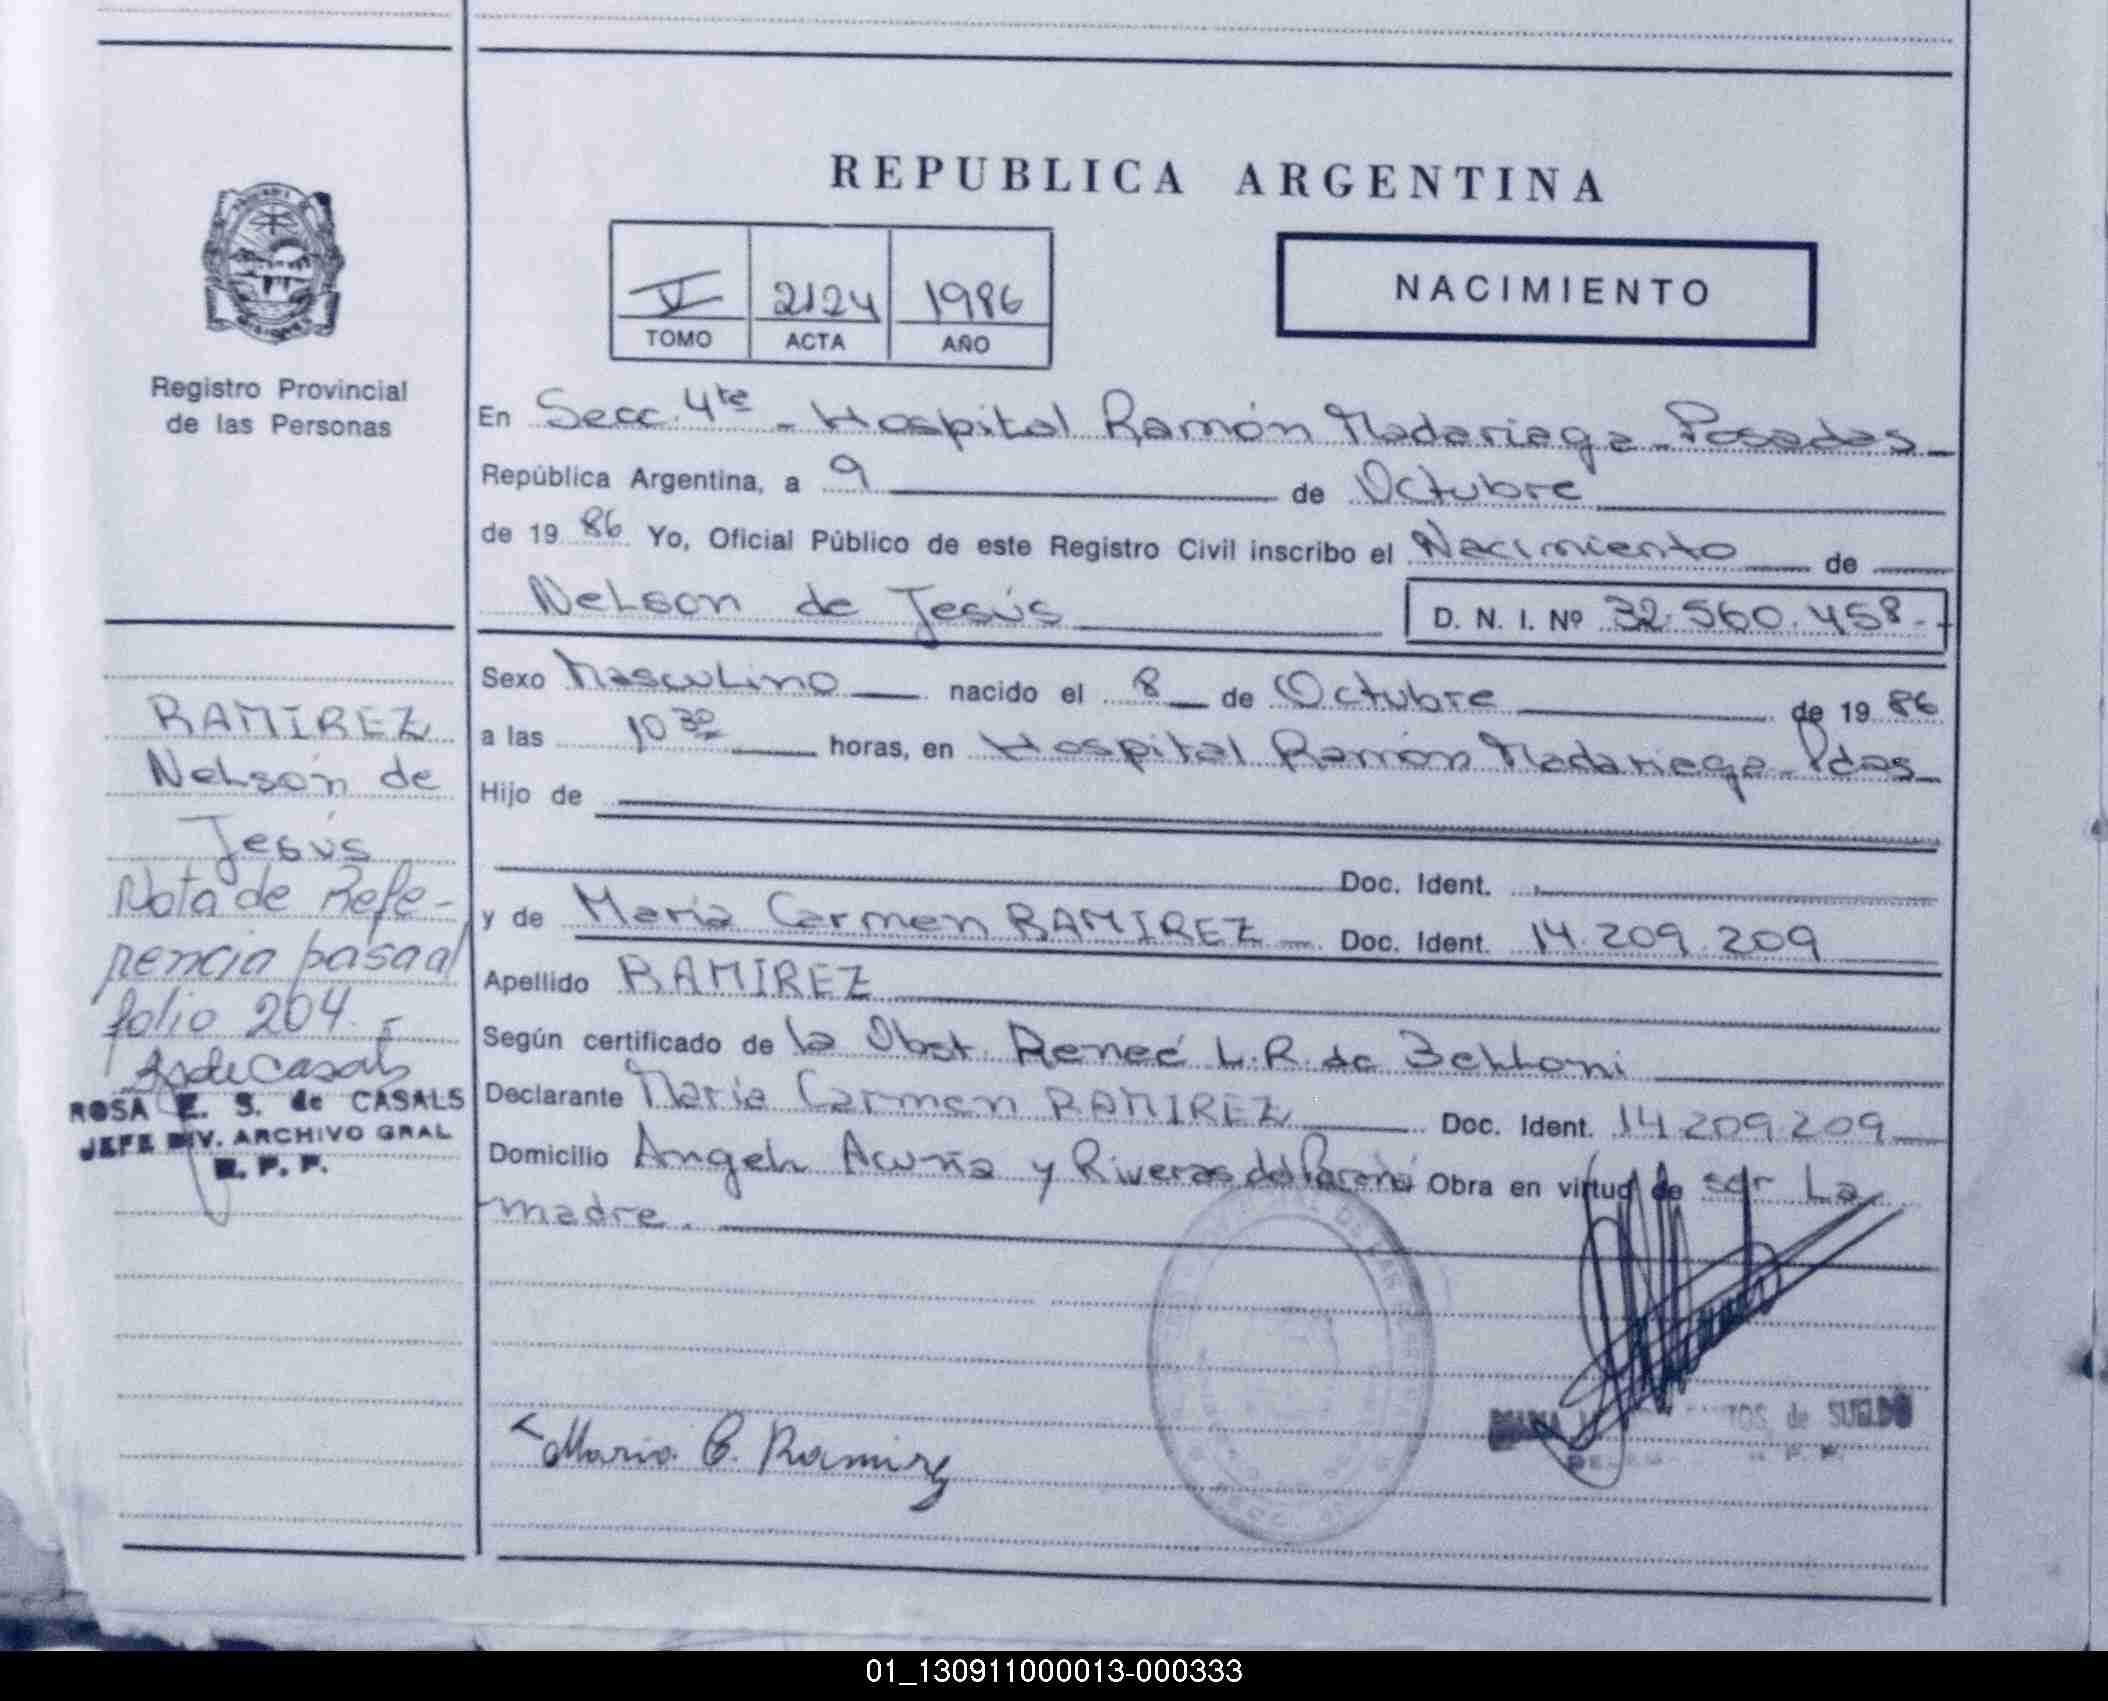 REPUBLICA ARGENTINA
V 2124 1986
TOMO ACTA AÑO
NACIMIENTO
Registro Provincial
de las Personas
En Secc. 4ta - Hospital Ramón Madariaga - Posadas
República Argentina, a 9 de Octubre
de 1986 Yo, Oficial Público de este Registro Civil inscribo el Nacimiento de
Nelson de Jesús D. N. I. Nº 32.560.458.-
Sexo Masculino nacido el 8 de Octubre de 1986
a las 10 30 horas, en Hospital Ramón Madariaga - Pdas
Hijo de
Doc. Ident.
y de María Carmen RAMIREZ Doc. Ident. 14.209.209
Apellido RAMIREZ
Según certificado de la Obst. Reneé L.R. de Belloni
Declarante María Carmen RAMIREZ Doc. Ident. 14.209.209
Domicilio Angel Acuña y Riveras del Paraná Obra en virtud de ser la
madre.
RAMIREZ
Nelson de
Jesús
Nota de Refe-
rencia pasa al
folio 204.-
ROSA E. S. de CASALS
JEFE DIV. ARCHIVO GRAL
R. P. P.
María C. Ramirez
de SUELDO
01_130911000013-000333